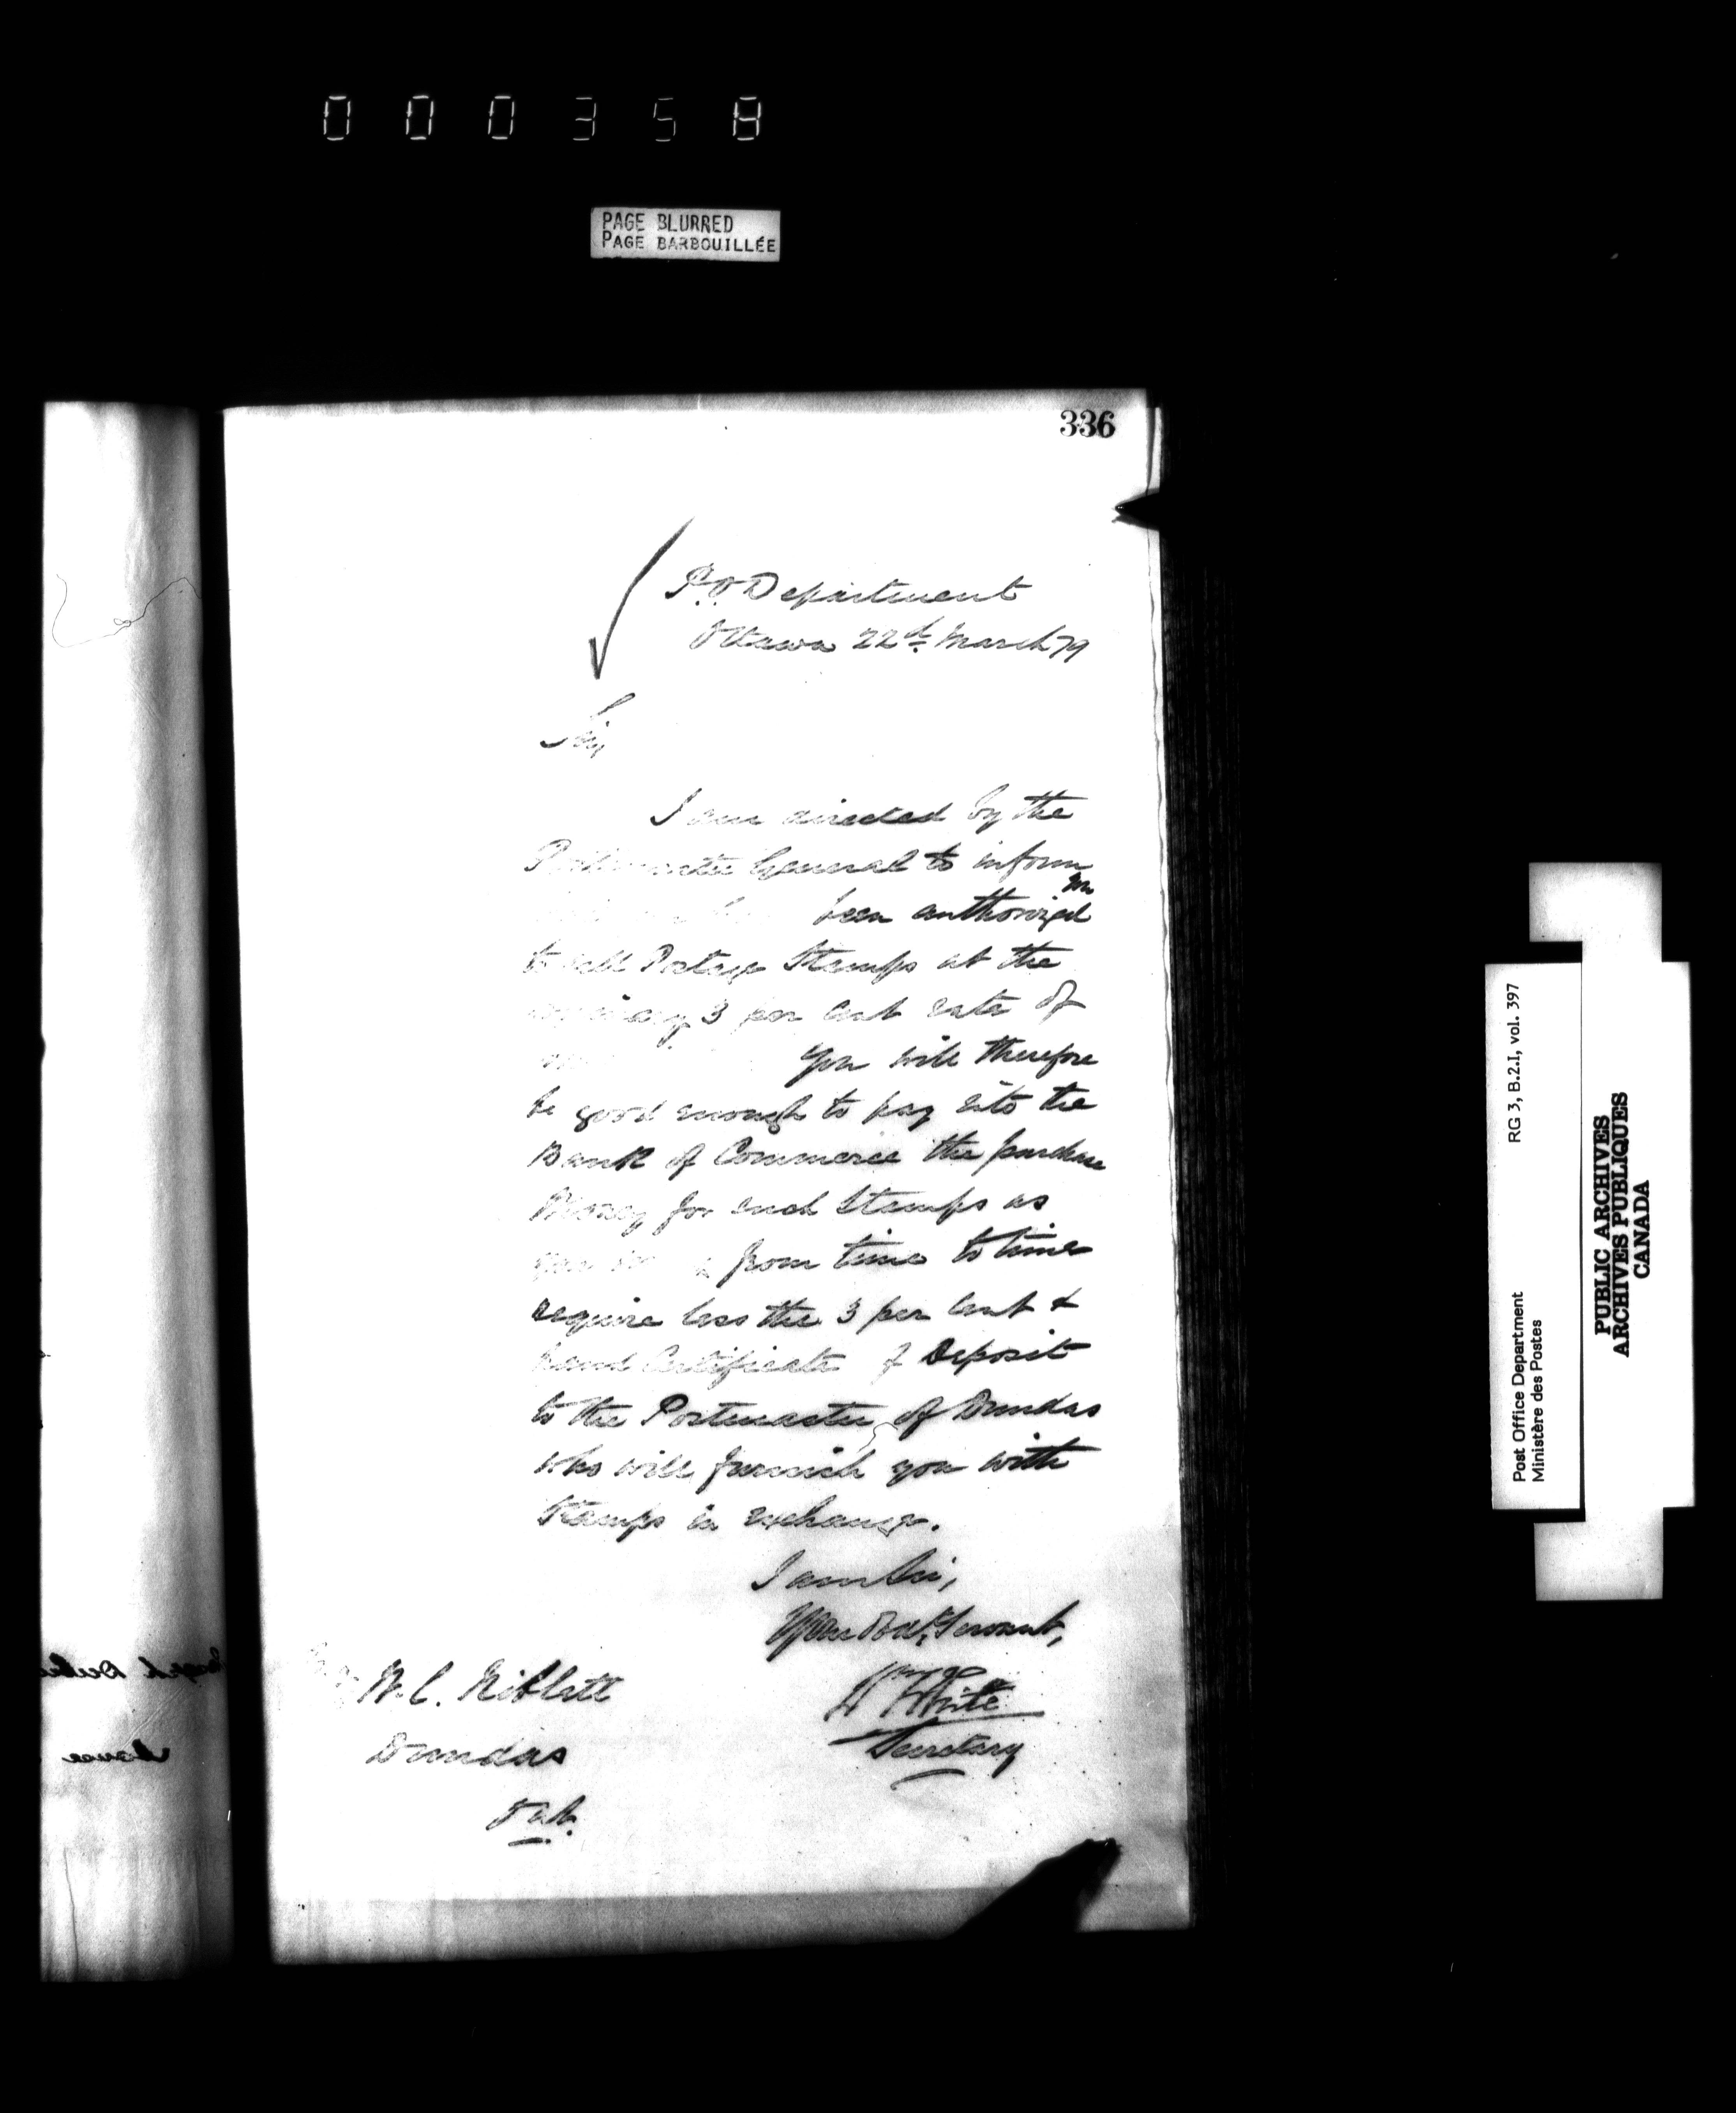 000358
PAGE BLURRED
PAGE BARBOUILLÉE
336
P.O Department
Ottawa 22d. March 79
Sir,
I am directed by the
Postmaster General to inform
been authorized
to sell Postage Stamps at the
3 per cent rate of
You will therefore
be good enough to pay into the
Bank of Commerce the purchase
Money for such Stamps as
you from time to time
require less the 3 per cent &
hand Certificate of Deposit
to the Postmaster of Dundas
who will furnish you with
Stamps in exchange.
I am Sir,
Your Obdt. Servant,
Wm White
Secretary
W. C. Niblett
Dundas
Ont.
Post Office Department
Ministère des Postes
RG 3, B.2.I, vol. 397
PUBLIC ARCHIVES
ARCHIVES PUBLIQUES
CANADA